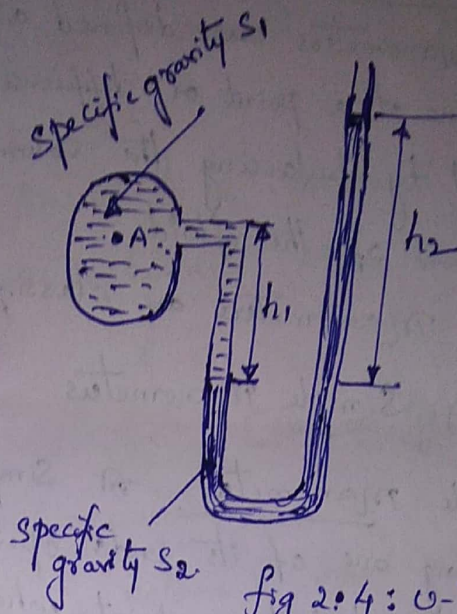 Specific gravity S1
A
h1
h2
Specific
gravity S2
fig 2.4: U-